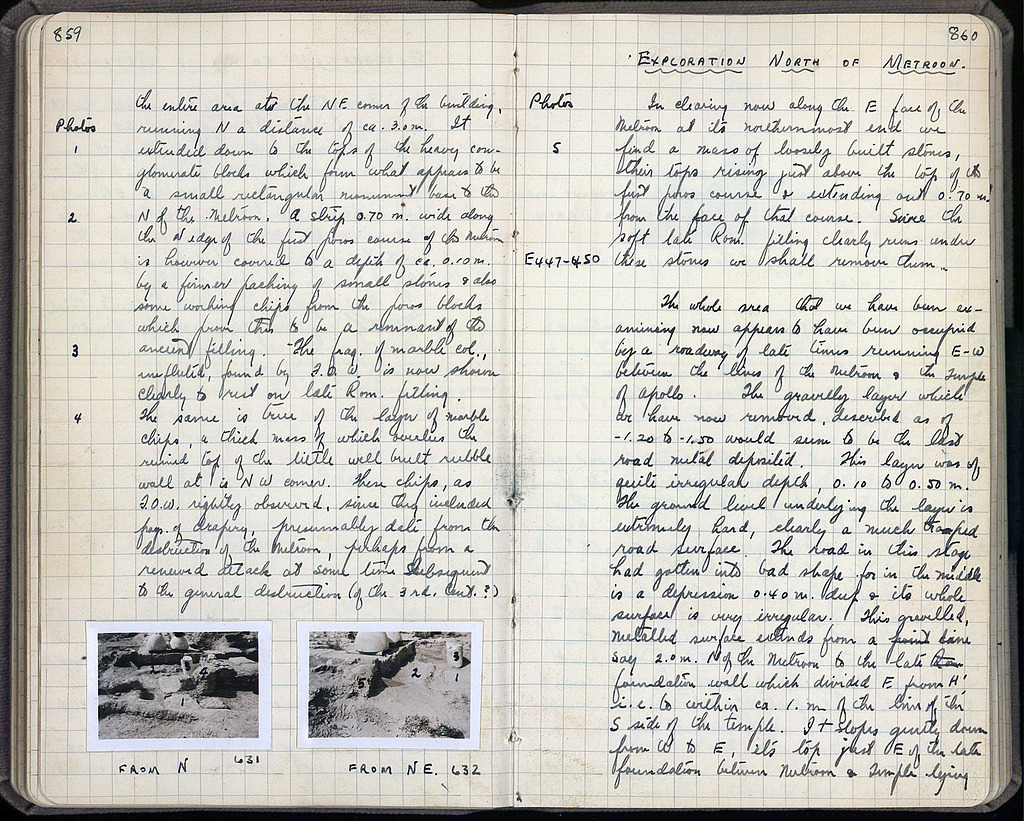 859
the entire area at the NE corner of the building,
Photos
running N a distance of ca. 3.0 m. It
1
extended down to the tops of the heavy con-
glomerate blocks which form what appears to be
a small rectangular monument base to the
2
N of the Metroon. A strip 0.70 m. wide along
the N edge of the first poros course of the Metroon
is however covered to a depth of ca. 0.10 m.
by a firmer packing of small stones & also
some working chips from the poros blocks
which prove this to be a remnant of the
3
ancient filling. The frag. of marble col.,
unfluted, found by F.O.W. is now shown
clearly to rest on late Rom. filling.
4
The same is true of the layer of marble
chips, a thick mass of which overlies the
ruined top of the little well built rubble
wall at is NW corner. These chips, as
F.O.W. rightly observed, since they included
frag. of drapery, presumably date from the
destruction of the Metroon, perhaps from a
renewed attack at some time subsequent
to the general destruction (of the 3rd. Cent.?)
4
1
5
2
3
1
FROM N 631
FROM NE. 632
860
EXPLORATION NORTH OF METROON.
Photos
In clearing now along the E face of the
Metroon at its northernmost end we
5
find a mass of loosely built stones,
their tops rising just above the top of the
first poros course & extending out 0.70 m.
from the face of that course. Since the
soft late Rom. filling clearly runs under
E447-450
these stones we shall remove them.
The whole area that we have been ex-
amining now appears to have been occupied
by a roadway of late times running E-W
between the lines of the Metroon & the Temple
of Apollo. The gravelly layer which
we have now removed, described as of
-1.20 to -1.50 would seem to be the last
road metal deposited. This layer was of
quite irregular depth, 0.10 to 0.50 m.
The ground level underlying the layer is
extremely hard, clearly a much tramped
road surface. The road in this stage
had gotten into bad shape for in the middle
is a depression 0.40 m. deep & its whole
surface is very irregular. This gravelled,
metalled surface extends from a line
say 2.0 m. N of the Metroon to the late
foundation wall which divided E from H'
i.e. to within ca. 1. m. of the line of the
S side of the temple. It slopes gently down
from W to E, its top just E of the late
foundation between Metroon & Temple lying